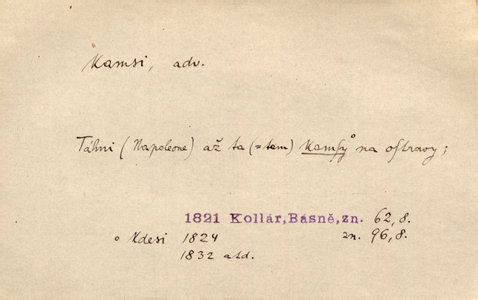 Kamsi, adv.
Táhni (Napoleone) až ta (= tam) Kamsy° na ostrovy;
1821 Kollár, Básně, zn. 62, 8.
° Kdesi 1824 zn. 96, 8.
1832 atd.